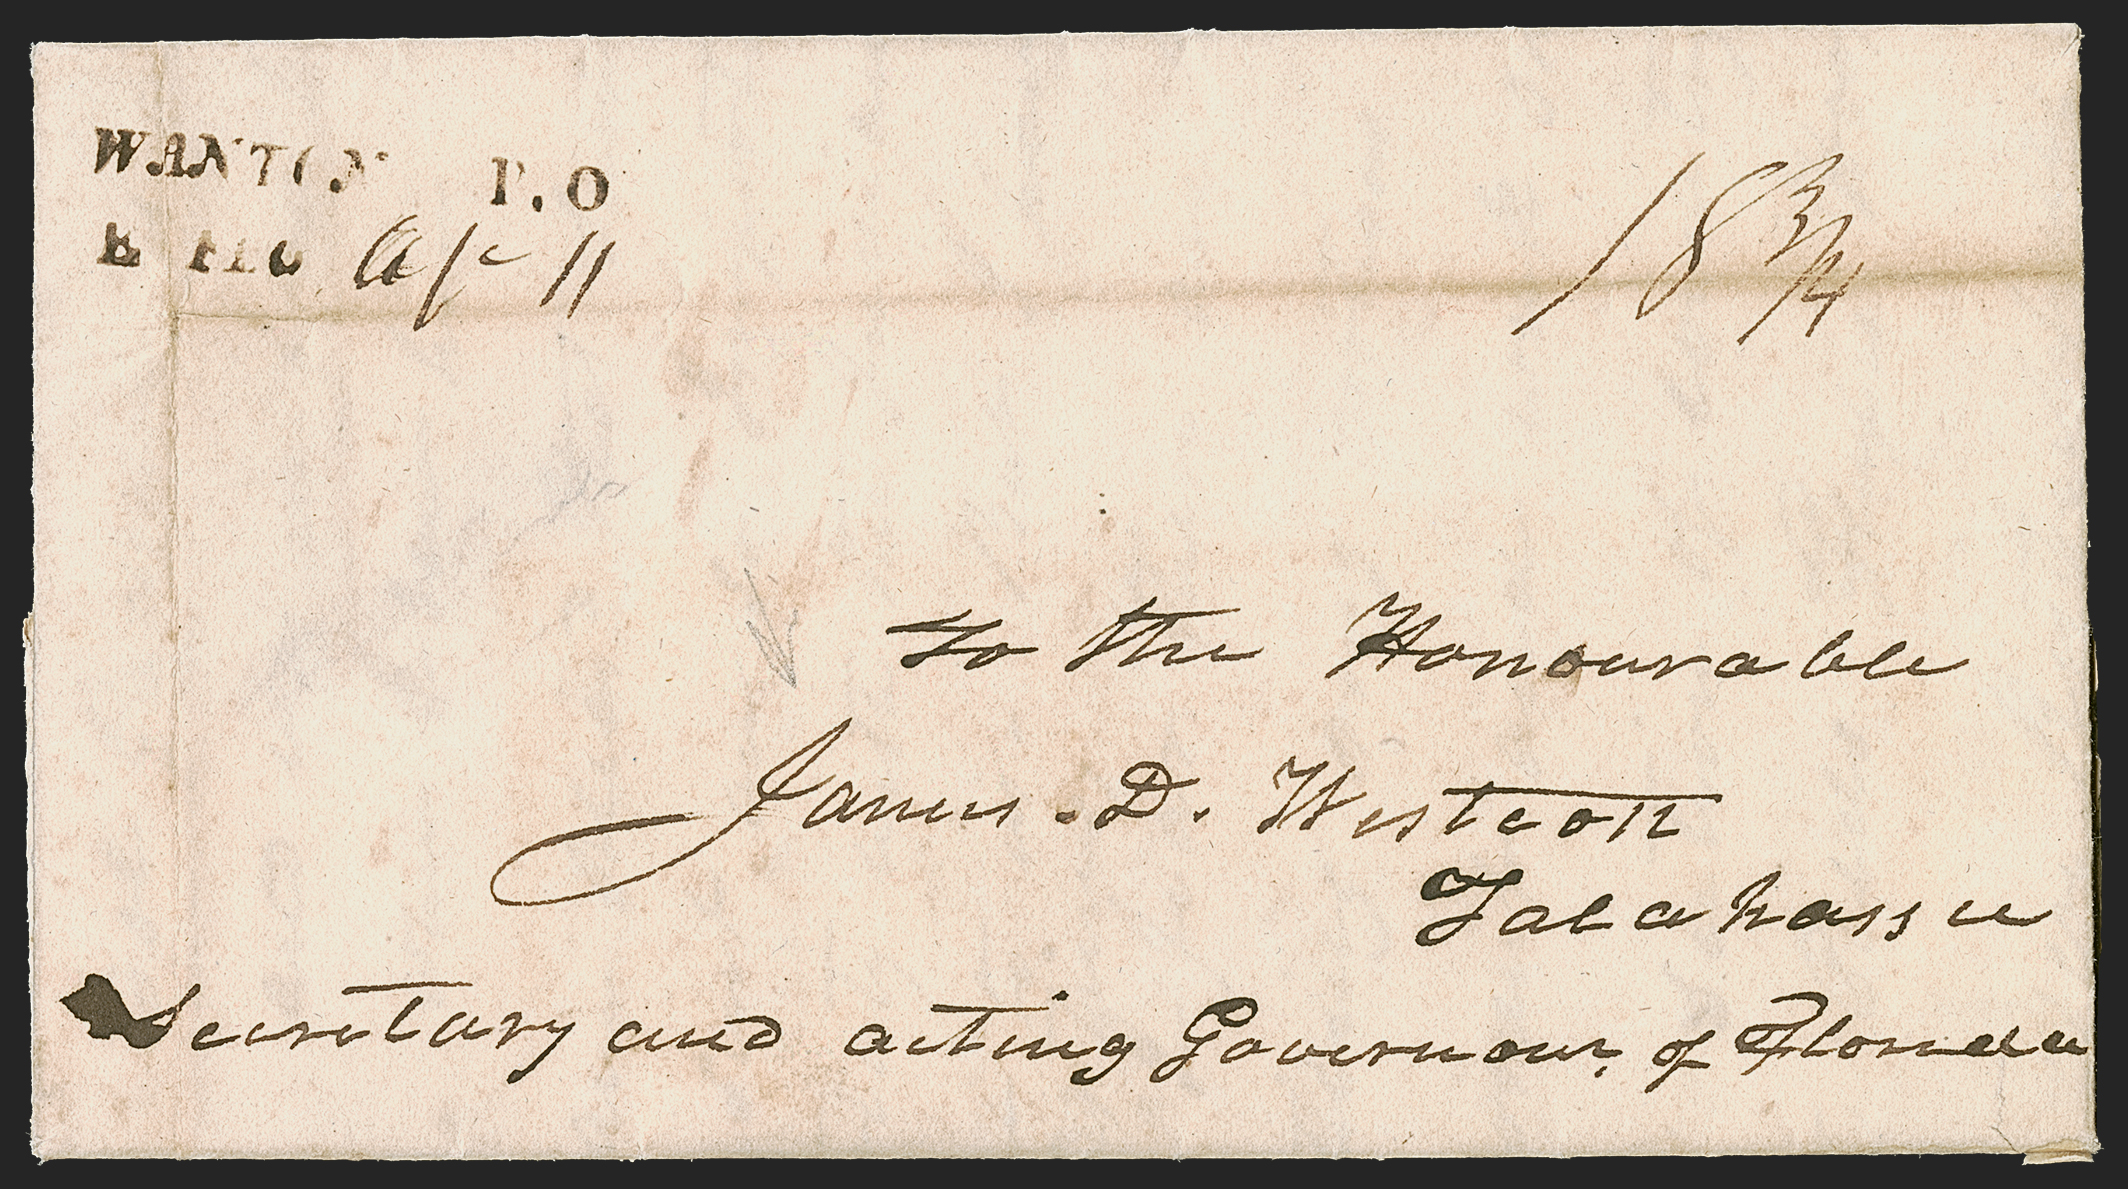 WANTON P.O
Ap 11
18 3/4
To the Honourable
James . D. Westcott
Talahassee
Secretary and acting Governour of Florida